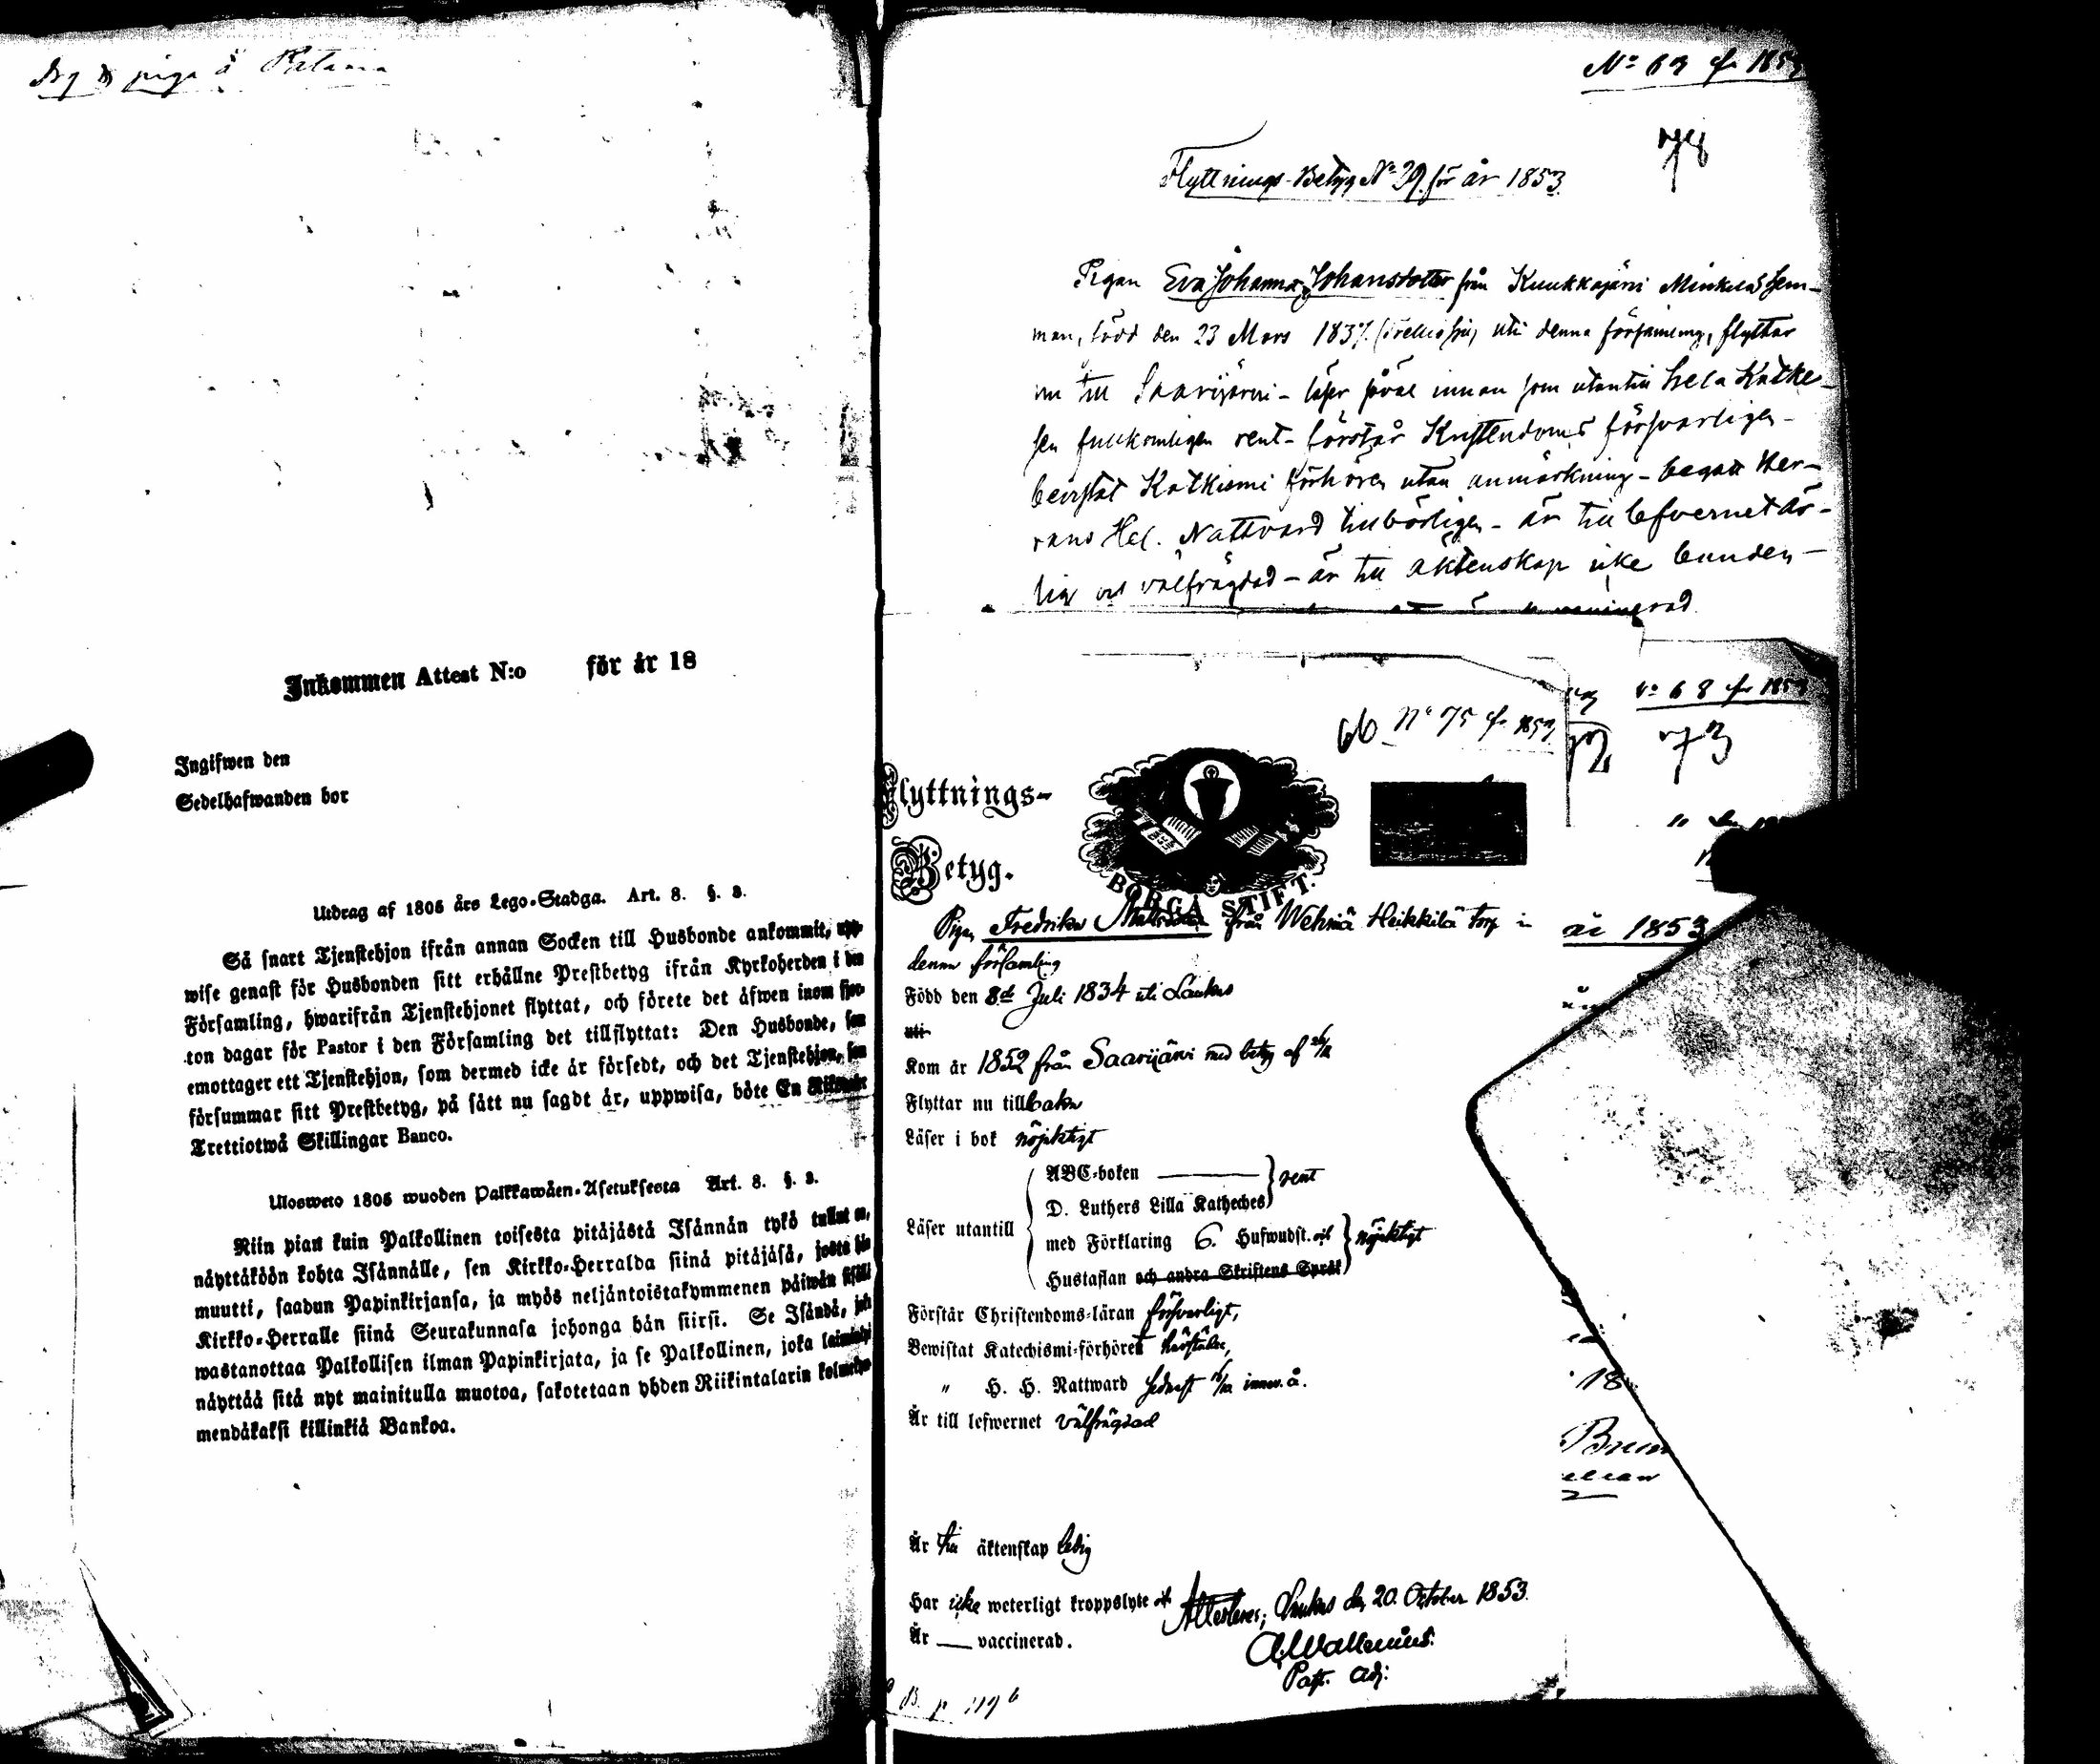 piga å Patama
Inkommen Attest N:o för år 18
Ingifwen den
Sedelhafwanden bor
Utdrag af 1805 års Lego-Stadga. Art. 8. §. 3.
Så snart Tjenstehjon ifrån annan Socken till Husbonde ankommit, upp-
wise genast för Husbonden sitt erhållne Prestbetyg ifrån Kyrkoherden i den
Församling, hwarifrån Tjenstehjonet flyttat, och förete det äfwen inom fjor-
ton dagar för Pastor i den Församling det tillflyttat: Den Husbonde, som
emottager ett Tjenstehjon, som dermed icke är försedt, och det Tjenstehjon, som
försummar sitt Prestbetyg, på sått nu sagdt är, uppwisa, böte En Riksdaler
Trettiotwå Skillingar Banco.
Ulosweto 1805 wuoden Palkkawäen-Asetuksesta Art. 8. §. 3.
Niin pian kuin Palkollinen toisesta pitäjästä Isännän tykö tullut on,
näyttäköön kohta Isännälle, sen Kirkko-Herralda siinä pitäjäsä, josta hän
muutti, saadun Papinkirjansa, ja myös neljäntoistakymmenen päiwän sisällä
Kirkko-Herralle siinä Seurakunnasa johonga hän siirsi. Se Isändä, joka
wastanottaa Palkollisen ilman Papinkirjata, ja se Palkollinen, joka laiminlyö
näyttää sitä nyt mainitulla muotoa, sakotetaan yhden Riikintalarin kolmekym-
mendäkaksi killinkiä Bankoa.
No 63 f. 1853
78
Flyttnings-Betyg No 29 för år 1853
Pigan Eva Johanna Johansdotter från Kuukkajärvi Minkilä hem-
man, född den 23 Mars 1837 uti denna församling, flyttar
nu till Saarijärvi - läser såväl innan som utantill hela Katke-
sen fullkomligen rent - förstår Kristendoms försvarligen -
bevistat Katkismi förhören utan anmärkning - begått Her-
rans Hel. Nattvard tillbörligen - är till lefvernet är-
lig och välfrägdad - är till äktenskap icke bunden -
No 68 f. 1853
73
66 No 75 f. 1853
Flyttnings-
Betyg.
BORGÅ STIFT.
Pigan Fredrika Mattsdotter från Wehniä Heikkilä torp i
denna församling
Född den 8de Juli 1834 uti Laukas
uti
Kom år 1852 från Saarijärvi med betyg af
Flyttar nu tillbaka
Läser i bok nöjaktigt
Läser utantill
ABC-boken
D. Luthers Lilla Katheches
rent
med Förklaring 6. Hufwudst. och
Hustaflan och andra Skriftens Språk
nöjaktigt
Förstår Christendoms-läran försvarligt,
Bewistat Katechismi-förhören
" H. H. Nattward sednast innev. å.
Är till lefwernet välfrägdad
Är till äktenskap ledig
Har icke weterligt kroppslyte och
Är — vaccinerad.
Attesteras; Laukas den 20. October 1853.
A. Wallenius.
Past. Adj.
år 1853
18